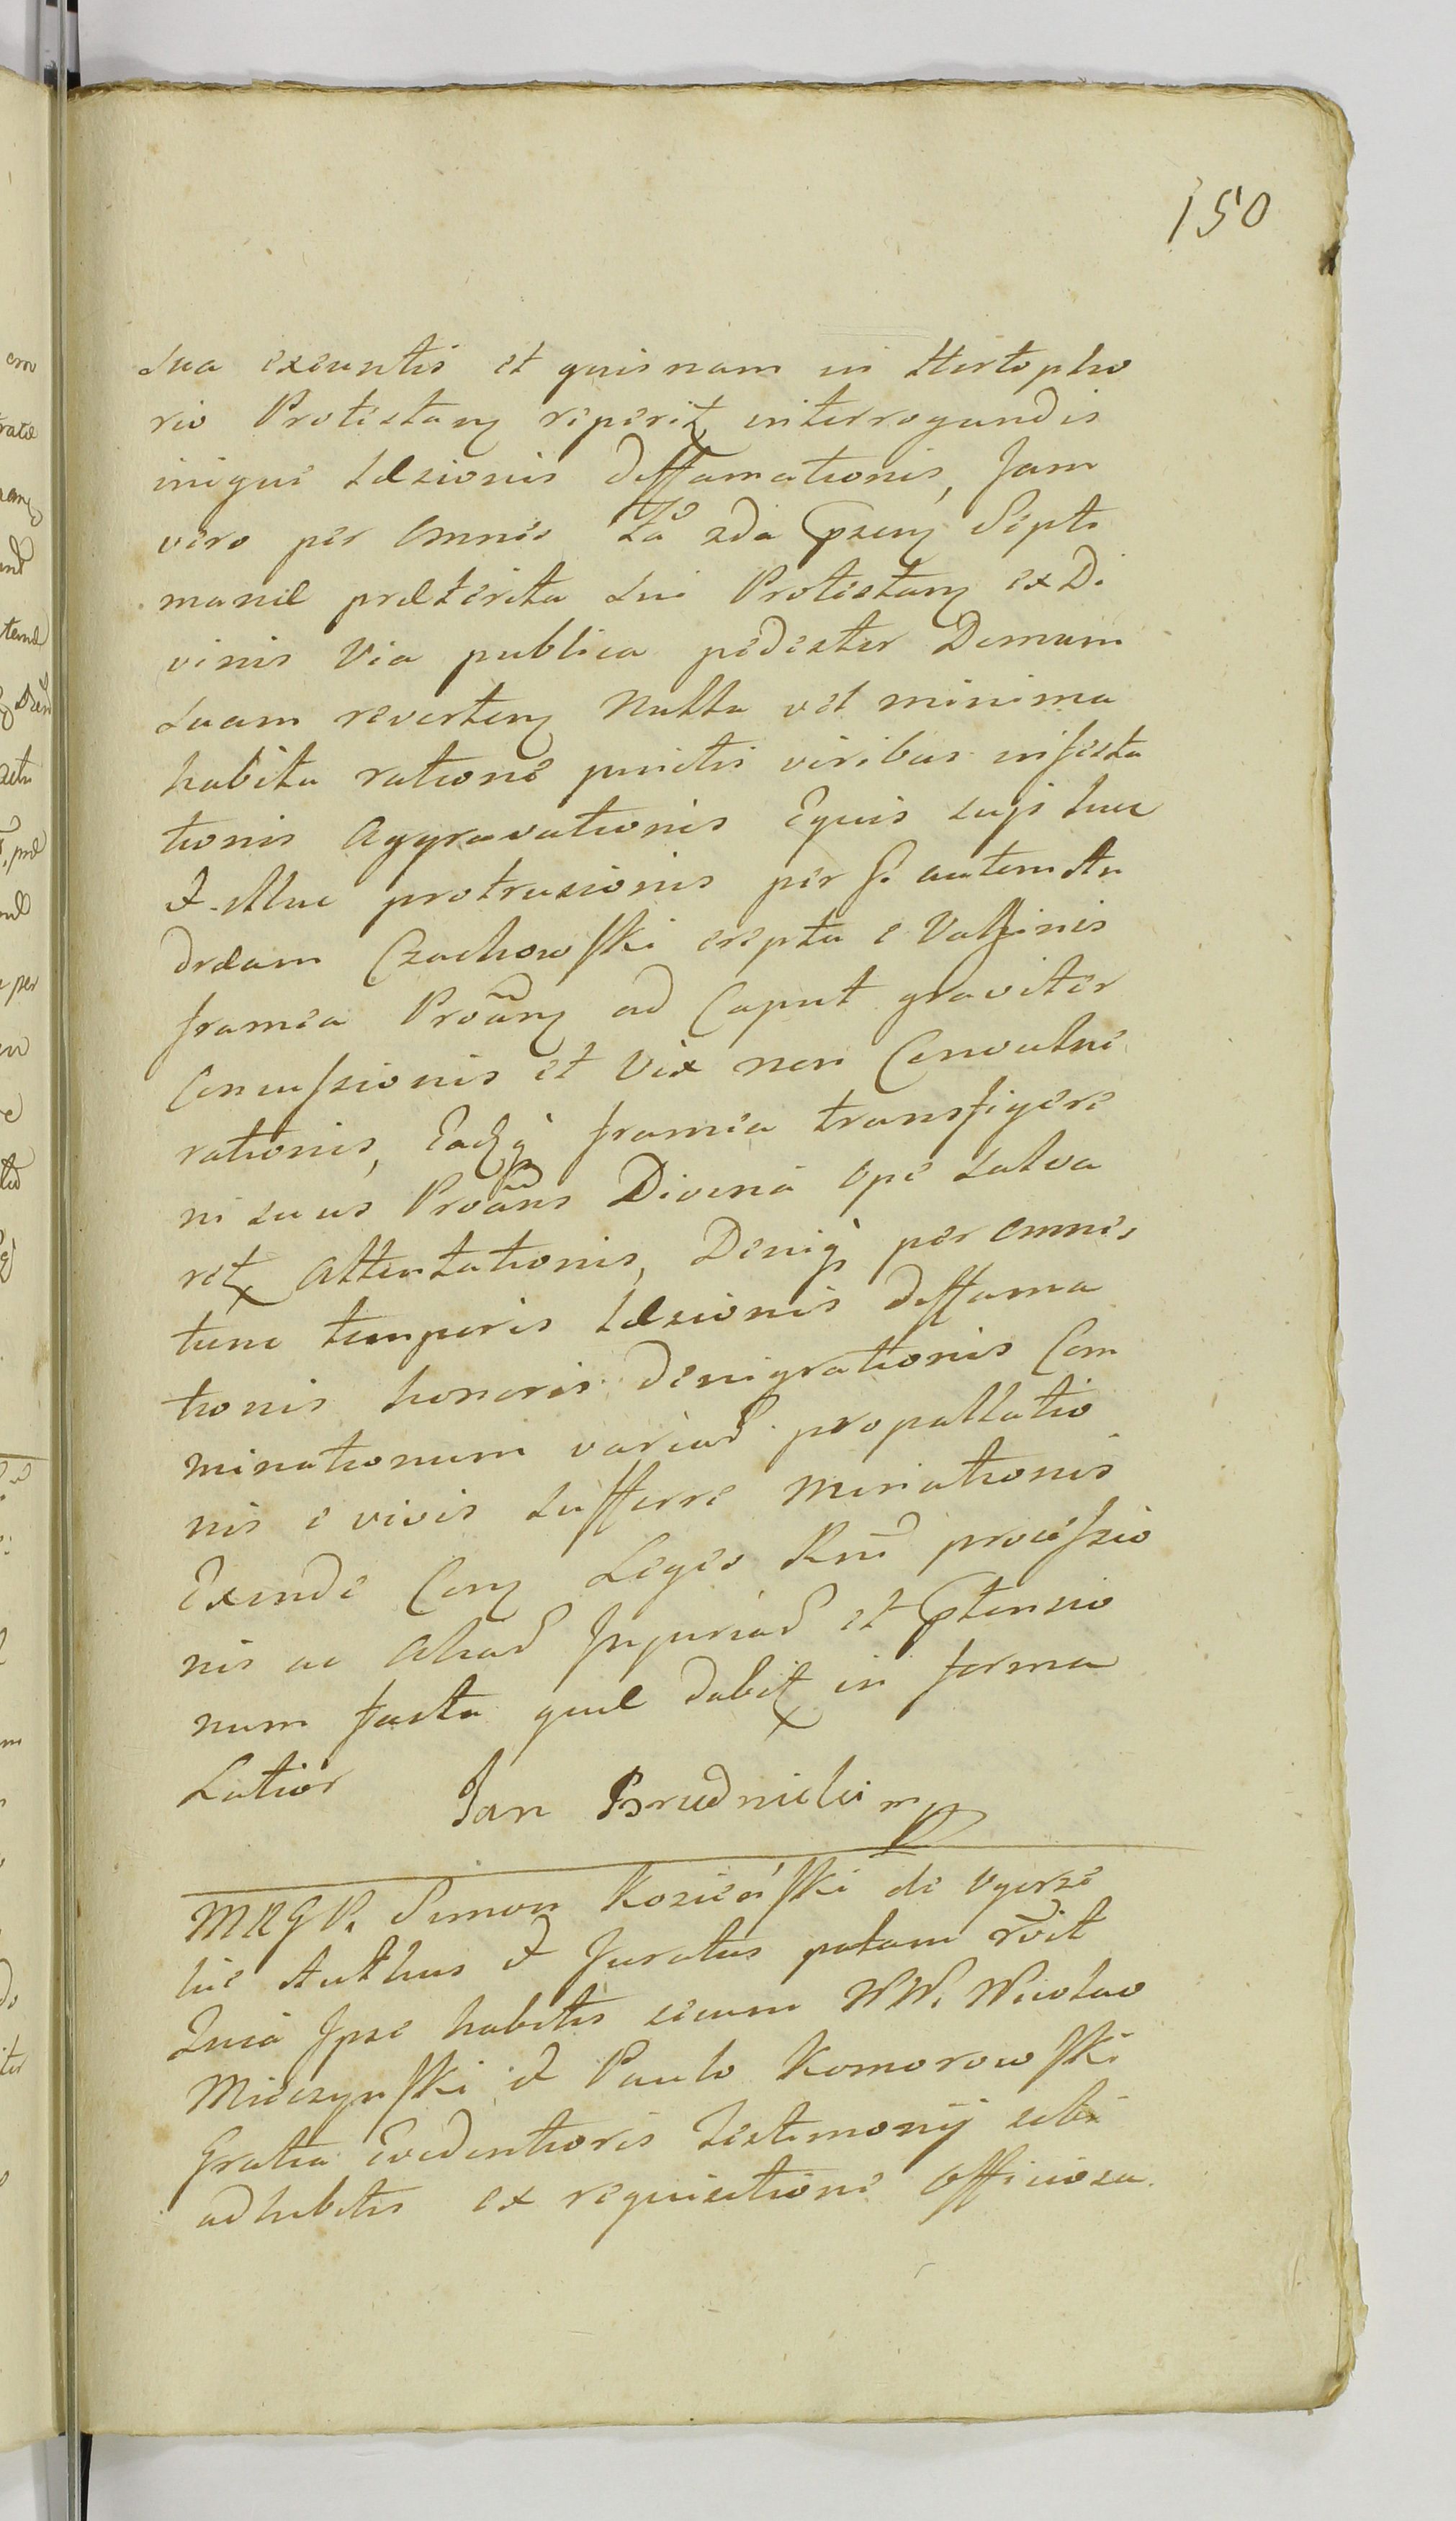 150
sua exeuntis et quisnam in Hertopho
rio Protestanz reperitx interrogandis
inique Læzionis diffamationis, Jam
vero per omnes Fa 2da pzenz Septi
manæ præterita Sui Protestanz ex Di
vinis Via publica pedester Domum
suam revertenz Nulla vel minima
habita ratione junctis viribus infesta
tionis Aggravationis Equis sujs huc
et illuc protrusionis per G. autem An
dræam Czachowski erepta e Vaginis
framea Proãnz ad Caput graviter
Concussionis et Vix non Convulne
rationis, Eadzq framea transfigere
ni suus Proãns Divina ope salva
retx Attentationis, Deniq per omnes
tunc temporis Læzionis diffama
tionis honoris denigrationis Com
minationum variar propallatio
nis e vivis sufferre Minationis
Exinde Conz Leges Rni processio
nis ac Aliar Injuriar et ptensio
num facta quæ dabitx in forma
Latior Jan Brudnicki mp
MRGP. Simon Kozieński de Vgerze
hic Authus et Juratus palam rõit
Quia Ipse habitis secum NN. Nicolao
Mieczynski et Paulo Komorowski
Gratia Evidentioris Testimonij sibi
adhibitis ex requisitione officiosa